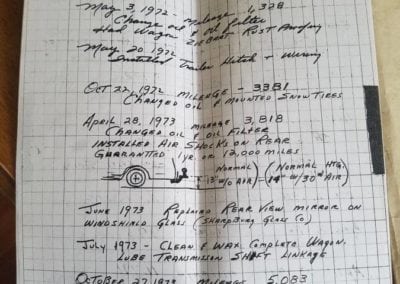 May 3, 1972 - Mileage - 1,328
Change oil & oil filter
Had Wagon Ziebart Rust Proofing
May 20 1972
Installed Trailer Hitch & Wiring
Oct 22, 1972 Mileage - 3381
Changed oil & mounted Snow Tires
April 28, 1973 mileage 3,818
Changed oil & oil Filter
Installed Air Shocks on Rear
Guarantted 1yr. or 12,000 miles
Normal (Normal Htg.
13" w/o Air) w/30# Air)
June 1973 Replaced Rear View mirror on
Windshield Glass (Sharpburg Glass Co)
July 1973 - Clean & Wax Complete Wagon.
Lube Transmisson Shift Linkage
October 27 1973 Mileage 5,083